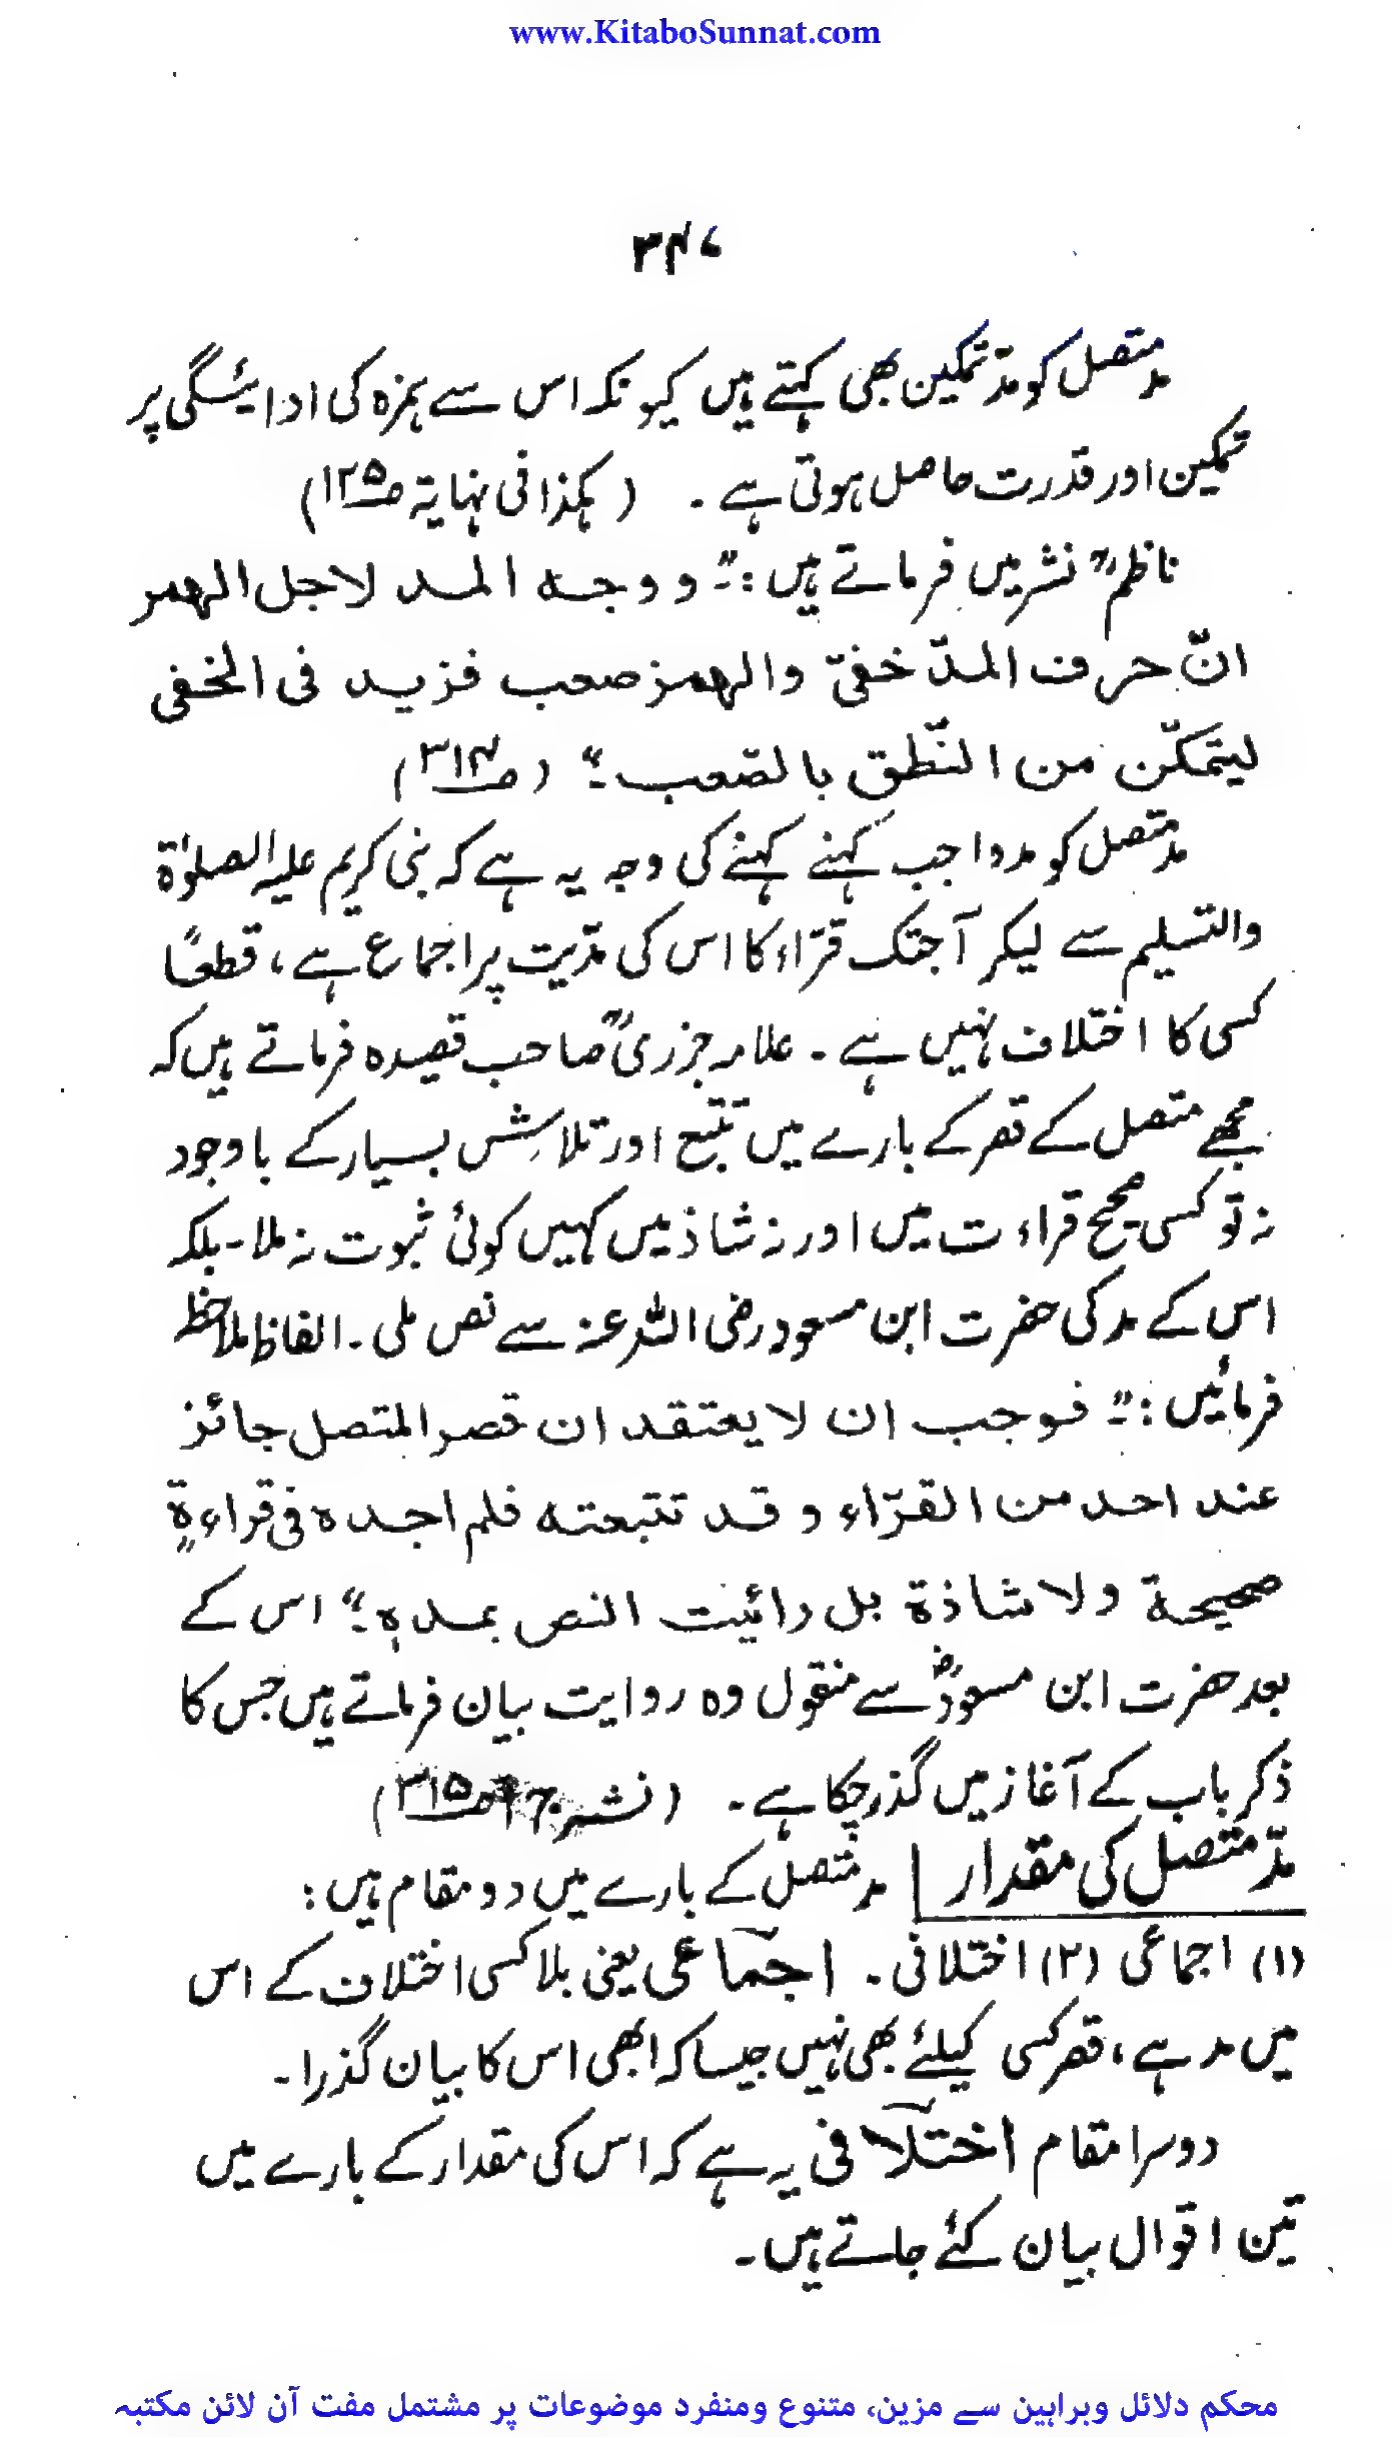 www.KitaboSunnat.com
مدِ متصل کو مدّ تمکین بھی کہتے ہیں کیونکہ اس سے ہمزہ کی ادائیگی پر
تمکین اور قدرت حاصل ہوتی ہے ۔ (کہٰذا فی نہایۃ صـ۱۲۵)
ناظمؒ نشر میں فرماتے ہیں :۔" ووجه المد لاجل الهمز
انّ حرف المدّ خفیّ والهمز صعب فزید فی الخفی
لیتمکّن من النّطق بالصّعب ۔" (صـ۳۱۴)
مدِ متصل کو مد واجب کہنے کہنے کی وجہ یہ ہے کہ نبی کریم علیہ الصلوٰۃ
والتسلیم سے لیکر آجتک قرّاء کا اس کی مدّیت پر اجماع ہے ، قطعًا
کسی کا اختلاف نہیں ہے ۔ علامہ جزریؒ صاحب قصیدہ فرماتے ہیں کہ
مجھے متصل کے قصر کے بارے میں تتبع اور تلاشِ بسیار کے باوجود
نہ تو کسی صحیح قراءت میں اور نہ شاذ میں کہیں کوئی ثبوت نہ ملا ۔ بلکہ
اس کے مد کی حضرت ابن مسعود رضی اللہ عنہ سے نص ملی ۔ الفاظ ملاحظہ
فرمائیں :۔" فوجب ان لا یعتقد ان قصر المتصل جائز
عند احد من القرّاء وقد تتبعته فلم اجده فی قراءةٍ
صحیحة ولا شاذة بل رائیت النص بمدہٖ ۔" اس کے
بعد حضرت ابن مسعودؓ سے منقول وہ روایت بیان فرماتے ہیں جس کا
ذکر باب کے آغاز میں گذر چکا ہے ۔ (نشر ج۱ صـ۳۱۵)
مدّ متصل کی مقدار | مدِ متصل کے بارے میں دو مقام ہیں :
(۱) اجماعی (۲) اختلافی ۔ اجماعی یعنی بلا کسی اختلاف کے اس
میں مد ہے ، قصر کسی کیلئے بھی نہیں جیسا کہ ابھی اس کا بیان گذرا ۔
دوسرا مقام اختلافی یہ ہے کہ اس کی مقدار کے بارے میں
تین اقوال بیان کئے جاتے ہیں ۔
محکم دلائل وبراہین سے مزین، متنوع ومنفرد موضوعات پر مشتمل مفت آن لائن مکتبہ